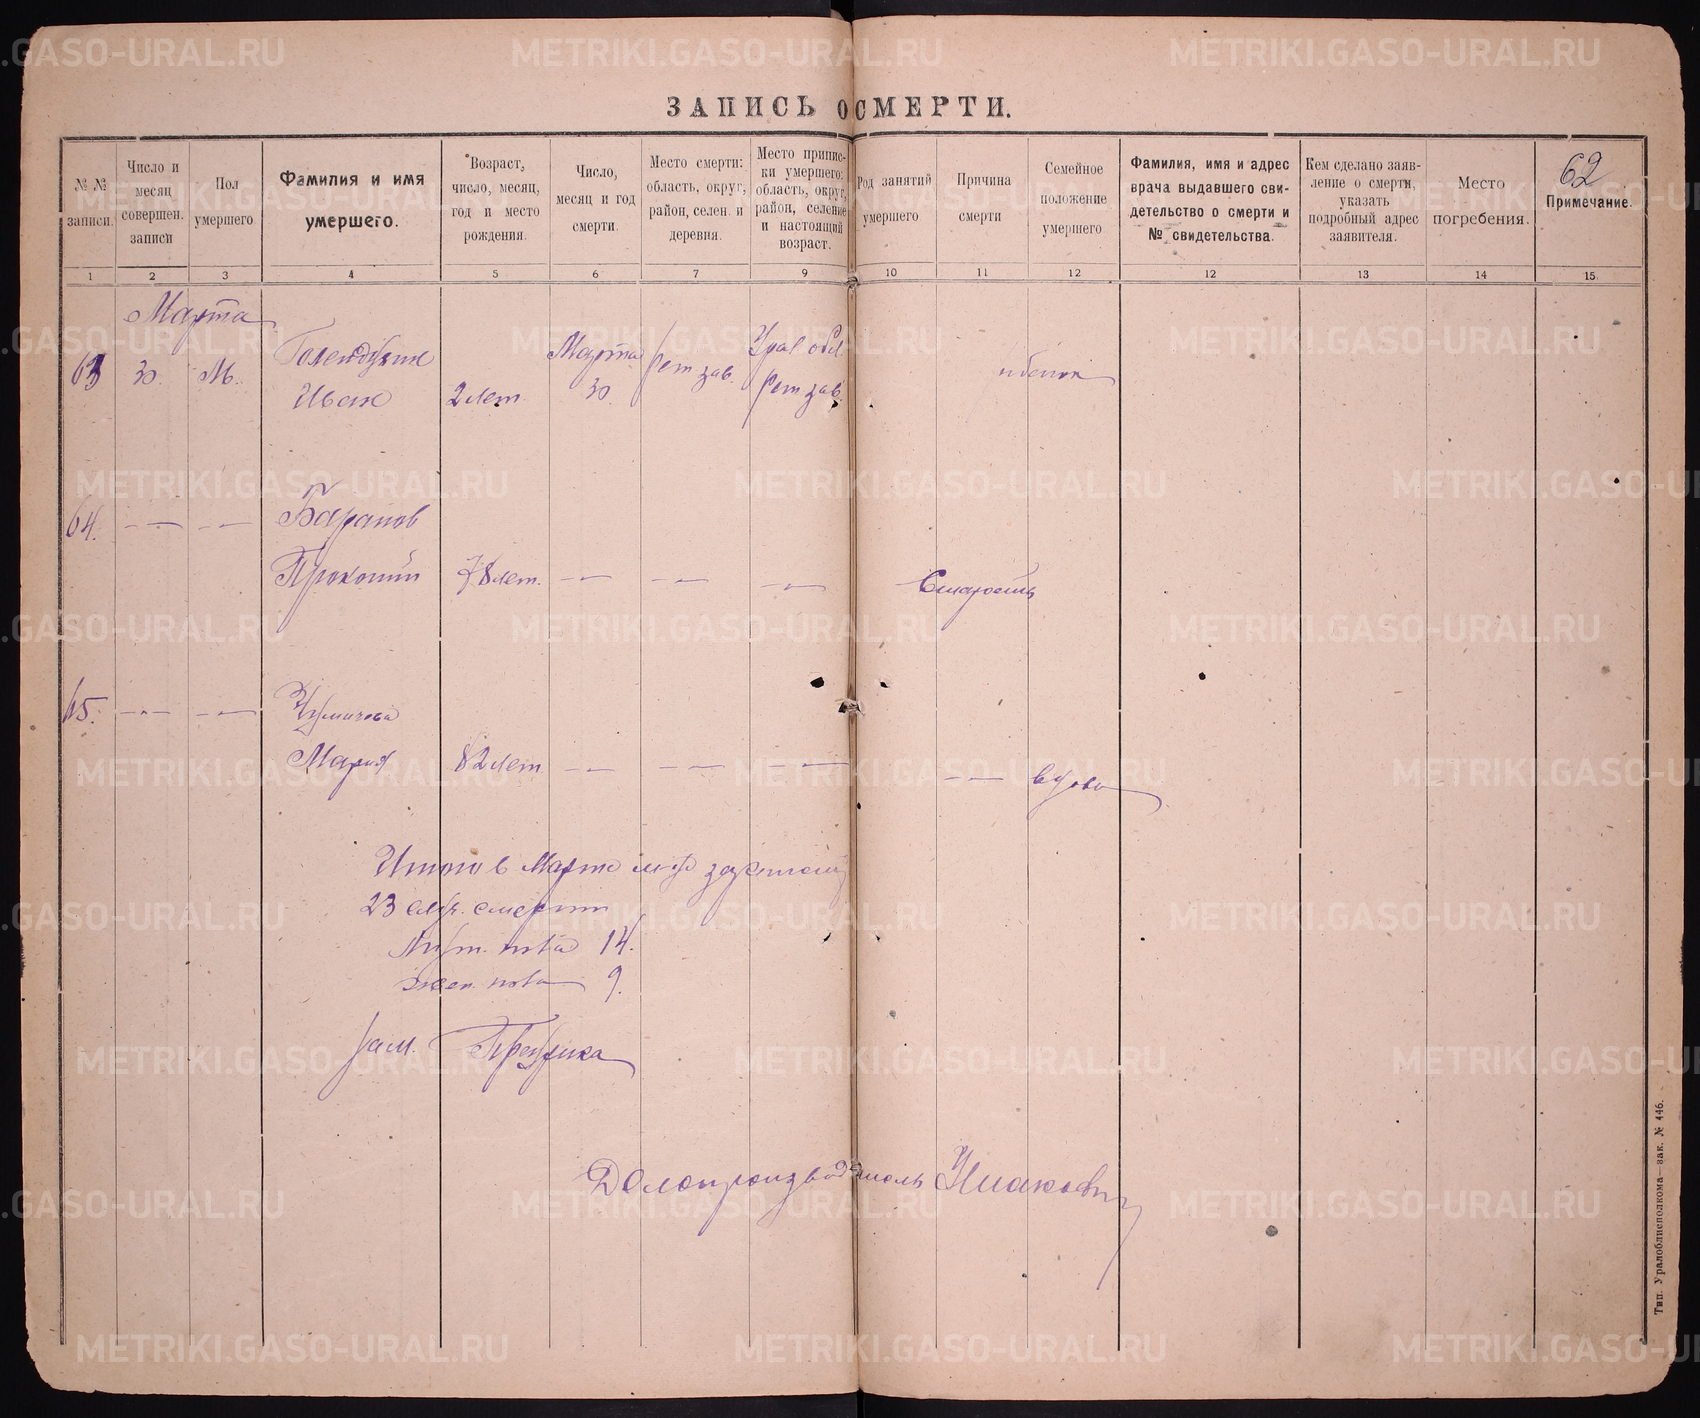 ЗАПИСЬ О СМЕРТИ.
№ № записи.
Число и месяц совершен. записи
Пол умершего
Фамилия и имя умершего.
Возраст, число, месяц, год и место рождения.
Число, месяц и год смерти.
Место смерти: область, округ, район, селен. и деревня.
Место приписки умершего: область, округ, район, селение и настоящий возраст.
Род занятий умершего
Причина смерти
Семейное положение умершего
Фамилия, имя и адрес врача выдавшего свидетельство о смерти и № свидетельства.
Кем сделано заявление о смерти, указать подробный адрес заявителя.
Место погребения.
62
Примечание.
1 2 3 4 5 6 7 9 10 11 12 12 13 14 15
Марта
63 30. М. Голендухин Марта Рет зав. Урал обл.
Иван 2 лет. 30. Рет зав.
64. — — Баранов
Прокопий 78 лет. — — — Старость
65. — —
Мария 82 лет — — — — вдова
Итого в Марте м-це
23 случ. смерти
Муж. пола 14.
жен. пола 9.
Зам.
Делопроизводитель
Тип. Уралоблисполкома—зак. № 446.
METRIKI.GASO-URAL.RU